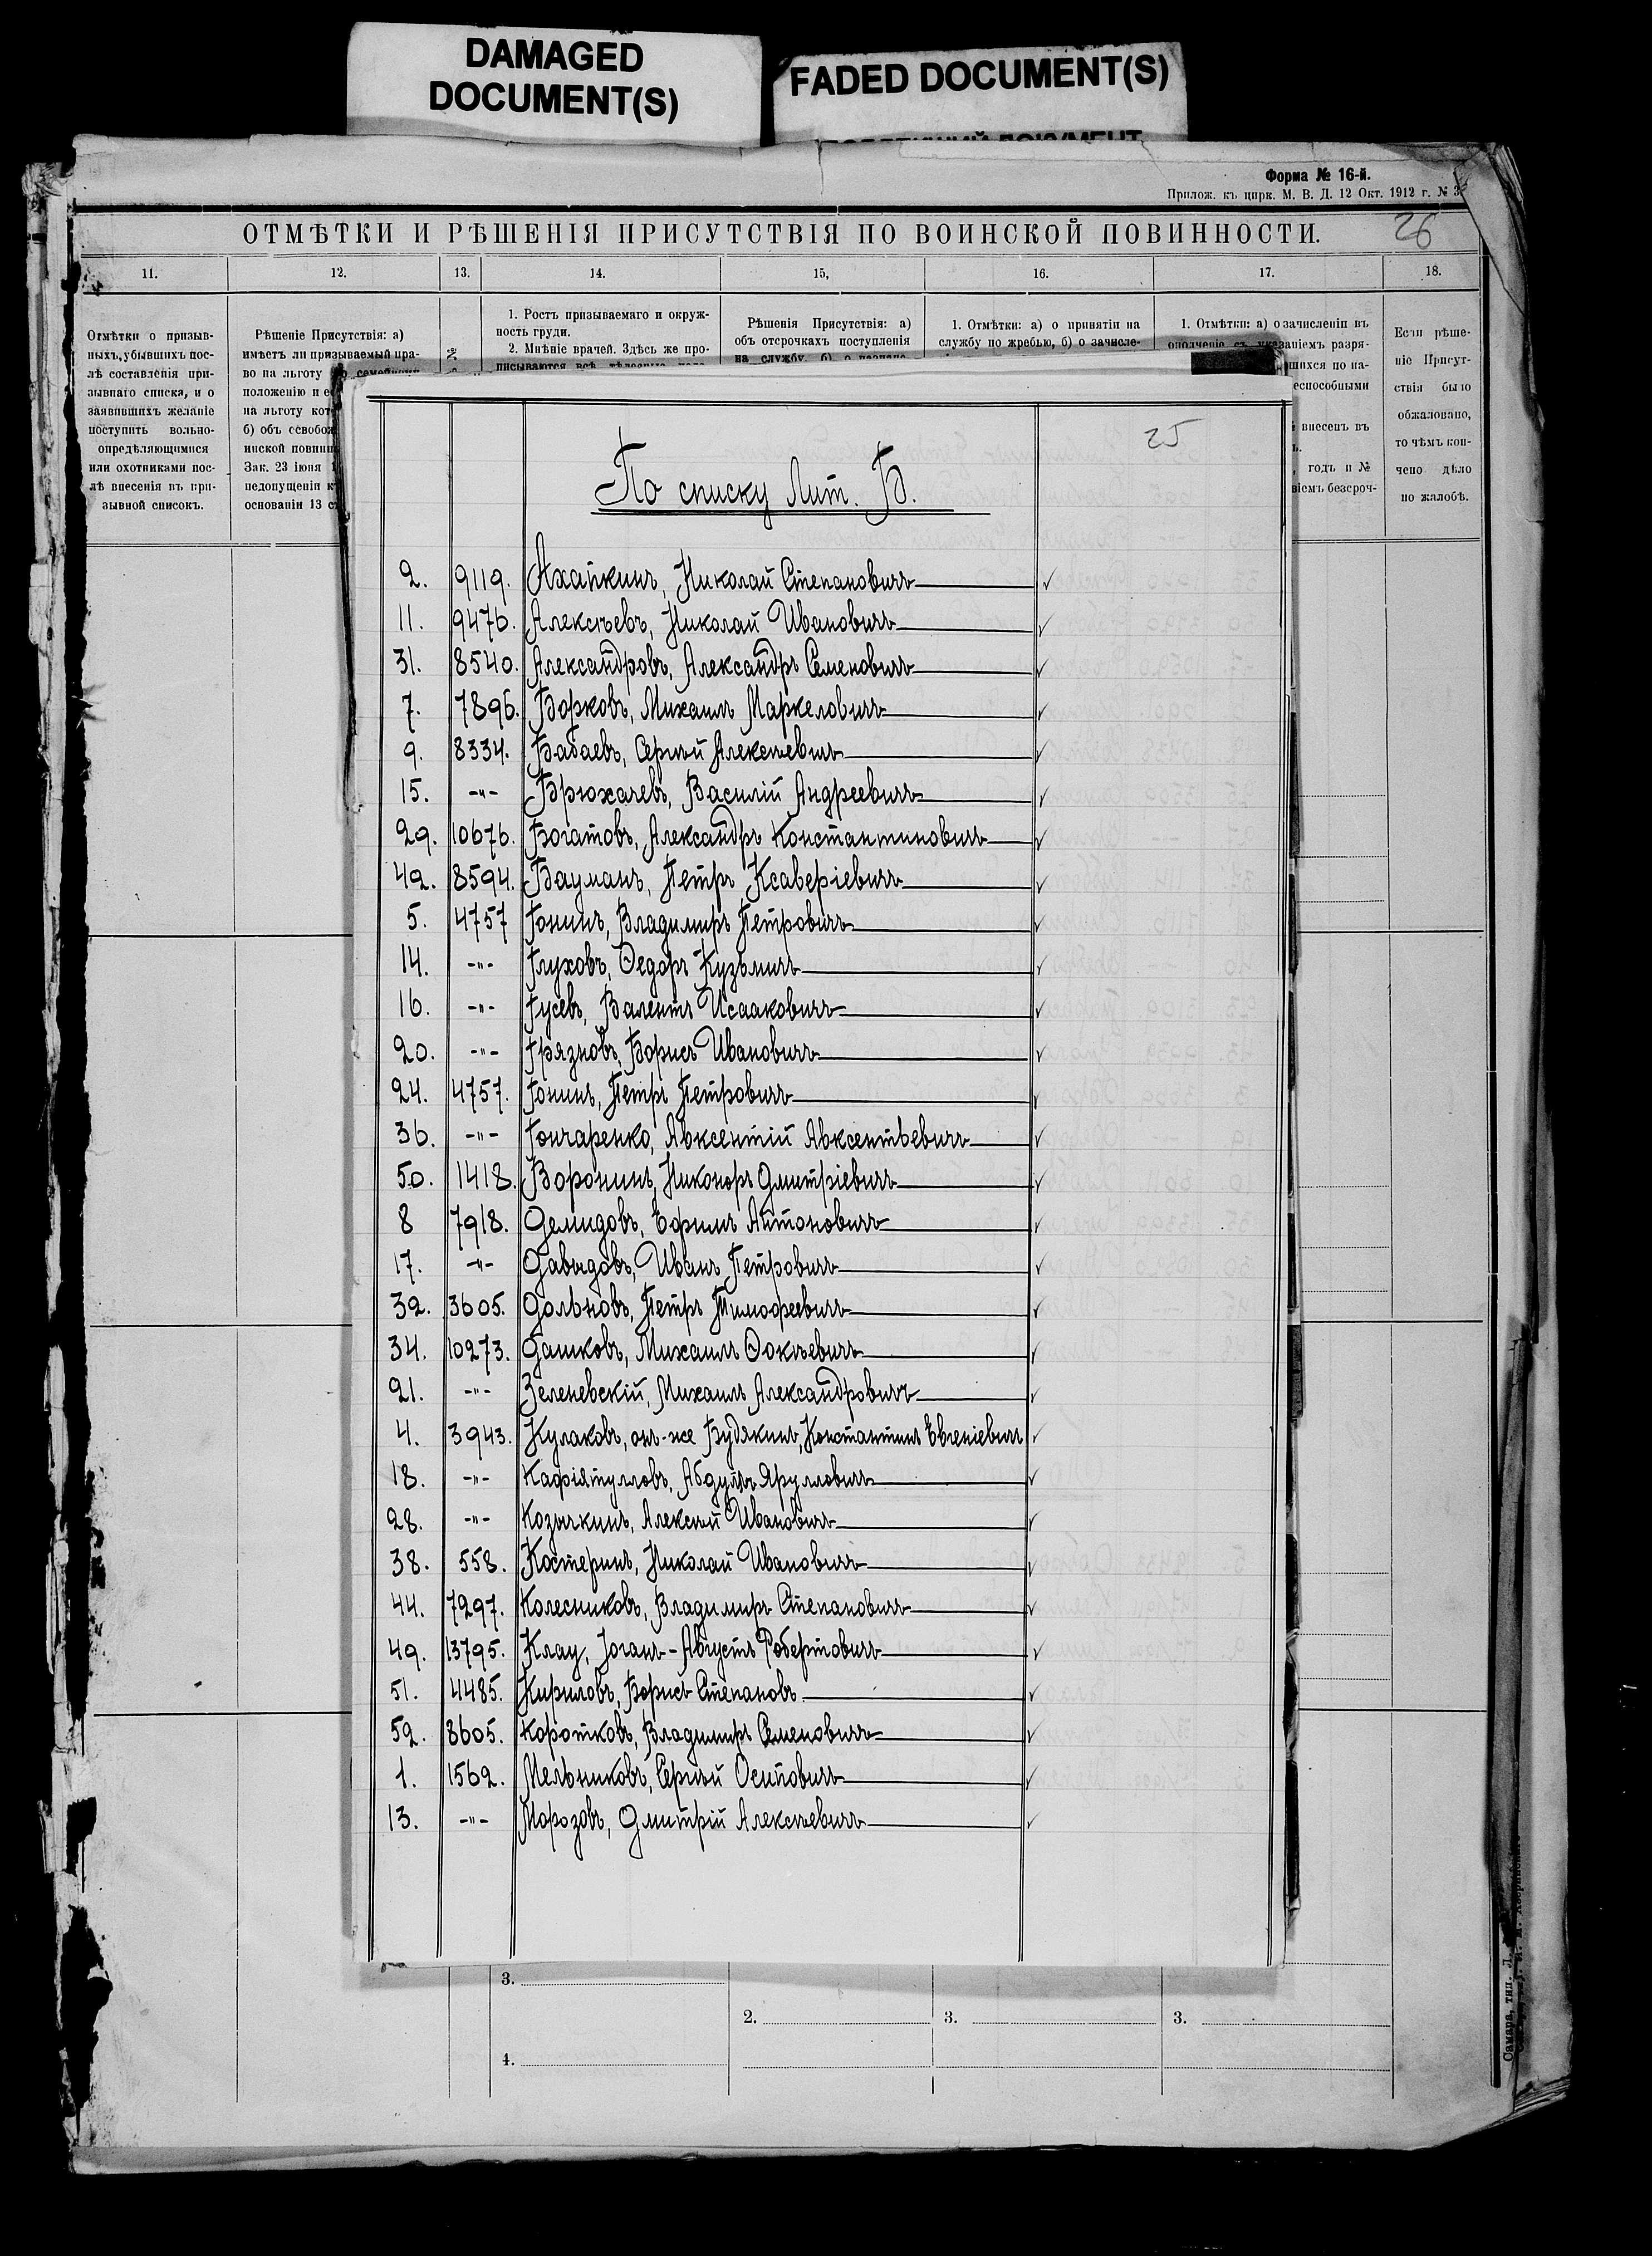 DAMAGED
DOCUMENT(S)
FADED DOCUMENT(S)
Форма № 16-й.
Прилож. къ цирк. М. В. Д. 12 Окт. 1912 г. № 3
ОТМѢТКИ И РѢШЕНІЯ ПРИСУТСТВІЯ ПО ВОИНСКОЙ ПОВИННОСТИ.
26
11. 12. 13. 14. 15, 16. 17. 18.
Отмѣтки о призыв-
ныхъ, убывшихъ пос-
лѣ составленія при-
зывнаго списка, и о
заявившихъ желаніе
поступить вольно-
опредѣляющимися
или охотниками пос-
лѣ внесенія въ при-
зывной списокъ.
Рѣшеніе Присутствія: а)
имѣетъ ли призываемый пра-
во на льготу по семейному
положенію и
на льготу
б) объ
инской
Зак. 23 іюня
недопущеніи
основаніи 13
№
1. Ростъ призываемаго и окруж-
ность груди.
2. Мнѣніе врачей. Здѣсь же про-
писываются всѣ
Рѣшенія Присутствія: а)
объ отсрочкахъ поступленія
на службу, б) о
1. Отмѣтки: а) о принятіи на
службу по жребью, б) о зачисле-
1. Отмѣтки: а) о зачисленіи въ
ополченіе съ указаніемъ разря-
внесенъ въ
годъ и №
Если рѣше-
ніе Присут-
ствія было
обжаловано,
то чѣмъ кон-
чено дѣло
по жалобѣ.
25
По списку Лит. Б.
2. 9119. Ахапкинъ, Николай Степановичъ ✓
11. 9476. Алексѣевъ, Николай Ивановичъ ✓
31. 8540. Александровъ, Александръ Семеновичъ ✓
7. 7896. Борковъ, Михаилъ Маркеловичъ ✓
9. 8334. Бабаевъ, Сергѣй Алексѣевичъ ✓
15. -"- Брюхачевъ, Василій Андреевичъ ✓
29. 10676. Богатовъ, Александръ Константиновичъ ✓
42. 8594. Бауманъ, Петръ Ксаверіевичъ ✓
5. 4757 Гонинъ, Владимиръ Петровичъ ✓
14. -"- Глуховъ, Ѳедоръ Кузьмичъ ✓
16. -"- Гусевъ, Валентъ Исааковичъ ✓
20. -"- Грязновъ, Борисъ Ивановичъ ✓
24. 4757. Гонинъ, Петръ Петровичъ ✓
36. -"- Гончаренко, Авксентій Авксентьевичъ ✓
50. 1418. Воронинъ, Никоноръ Дмитріевичъ ✓
8 7918. Демидовъ, Ефимъ Антоновичъ ✓
17. -"- Давыдовъ, Иванъ Петровичъ ✓
32. 3605. Дольновъ, Петръ Тимофеевичъ ✓
34. 10273. Дашковъ, Михаилъ Ѳокѣевичъ ✓
21. -"- Зеленевскій, Михаилъ Александровичъ ✓
4. 3943. Кулаковъ, онъ-же Будякинъ, Константинъ Евгеніевичъ ✓
18. -"- Кафіятулловъ, Абдулъ Ярулловичъ ✓
28. -"- Козычкинъ, Алексѣй Ивановичъ ✓
38. 558. Костеринъ, Николай Ивановичъ ✓
44. 7297. Колесниковъ, Владимиръ Степановичъ ✓
49. 13795. Клау, Іоганъ-Августъ Робертовичъ ✓
51. 4485. Кириловъ, Борисъ Степановъ ✓
52. 8605. Коротковъ, Владимиръ Семеновичъ ✓
1. 1562. Мельниковъ, Сергѣй Осиповичъ ✓
13. -"- Морозовъ, Дмитрій Алексѣевичъ ✓
3.
2. 3. 3.
4.
Самара, тип.